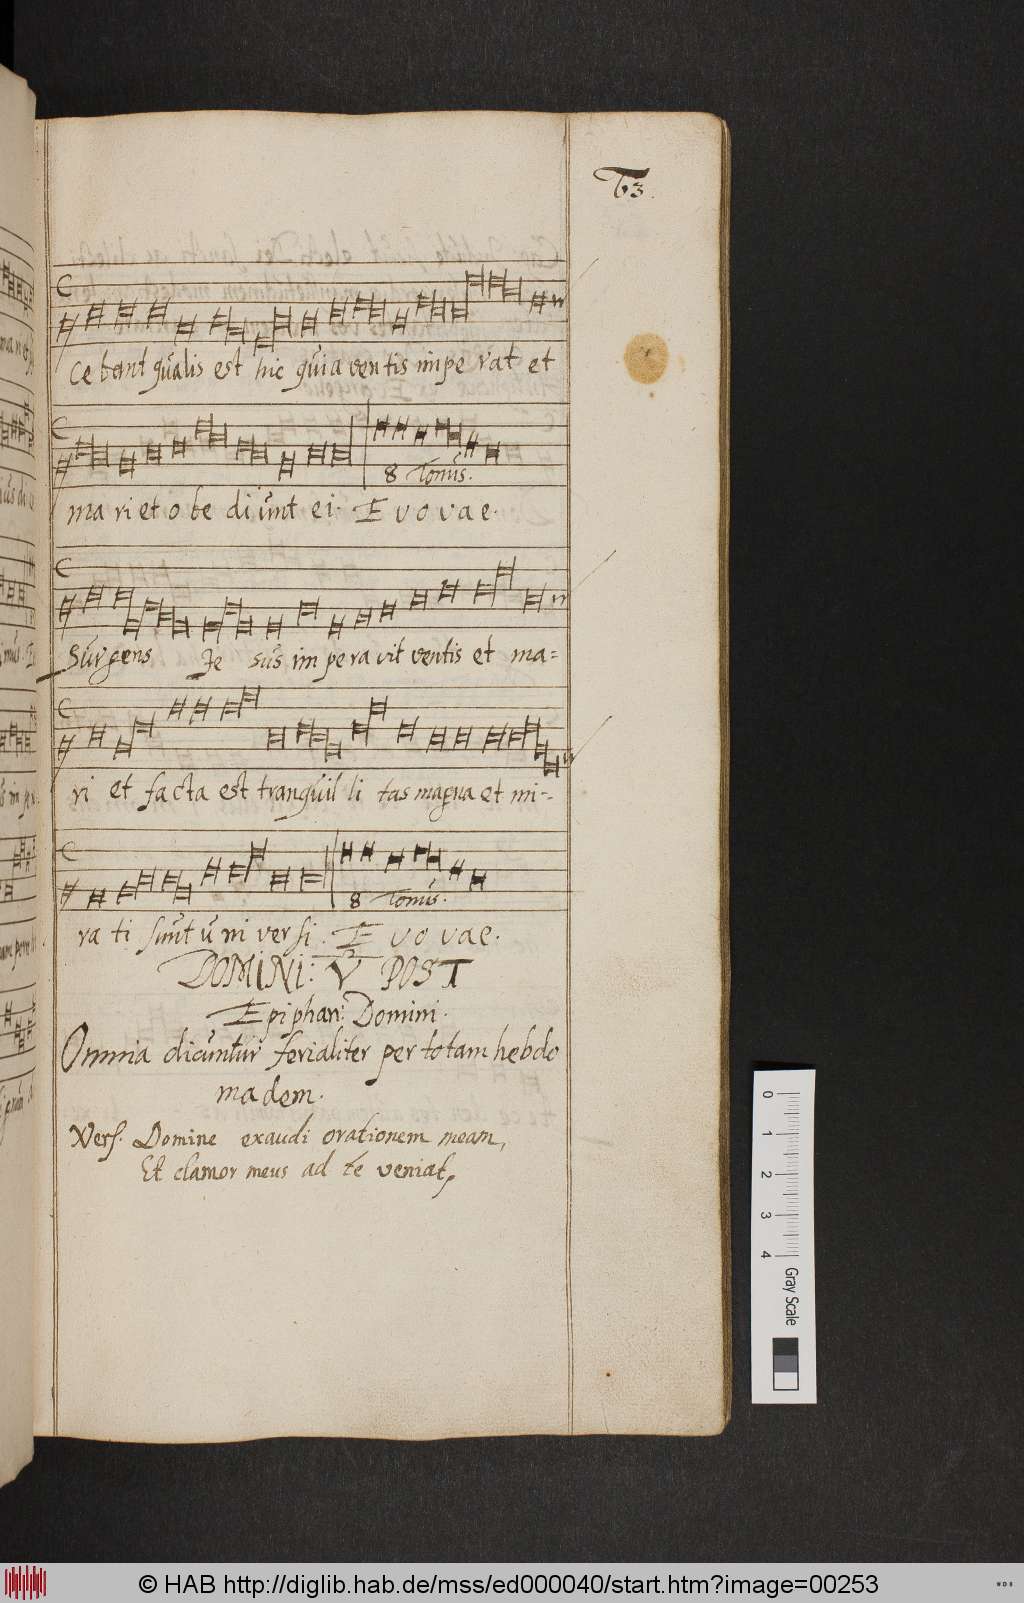 T63.
ce bant qualis est hic quia ventis impe rat et
8 Tonus.
ma ri et o be diunt ei. E v o v a e.
Surgens Je sus im pe ra vit ventis et ma=
ri et facta est tranquil li tas magna et mi=
8 Tonus.
ra ti sunt u ni ver si. E v o v a e.
DOMINI: V POST
Epiphan: Domini.
Omnia dicuntur ferialiter per totam hebdo
madem.
Vers. Domine exaudi orationem meam,
Et clamor meus ad te veniat.
0 1 2 3 4 Gray Scale
© HAB http://diglib.hab.de/mss/ed000040/start.htm?image=00253